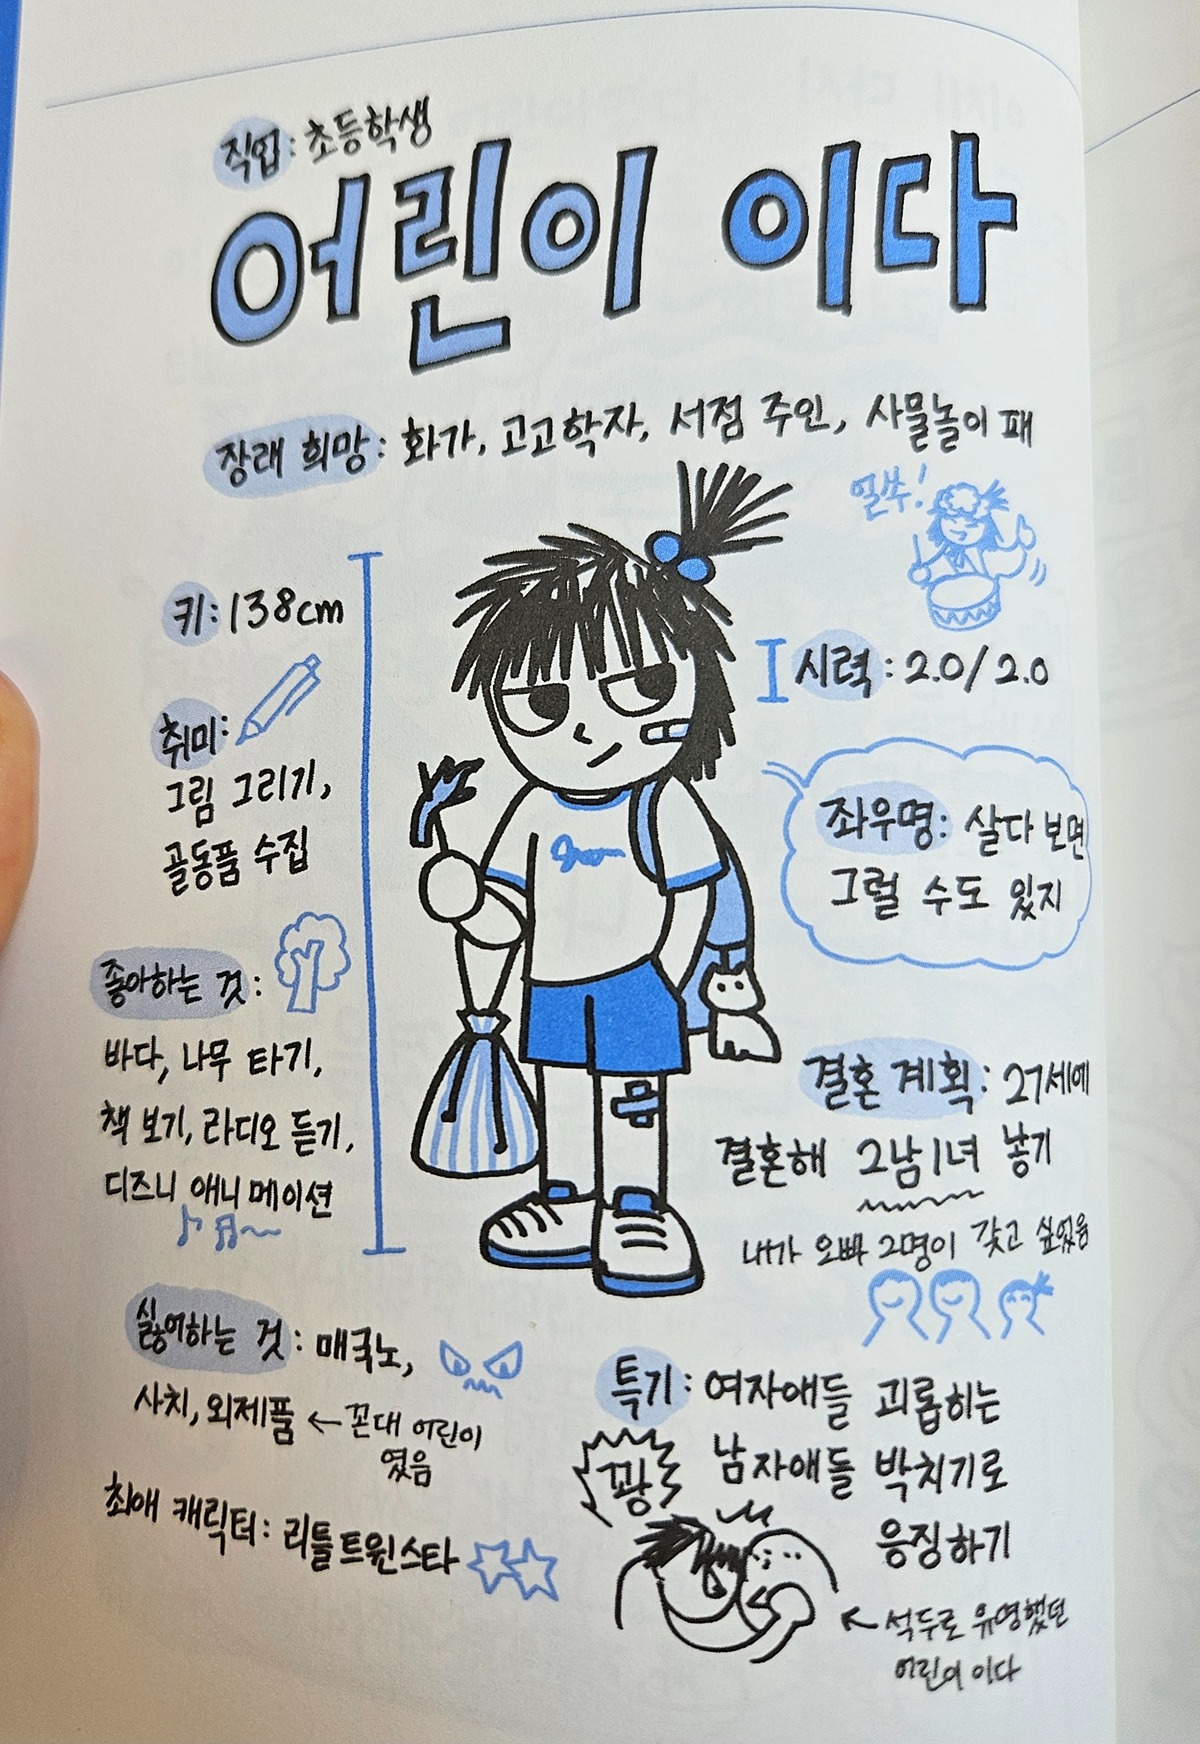 직업: 초등학생
어린이 이다
장래 희망: 화가, 고고학자, 서점 주인, 사물놀이 패
얼쑤!
키: 138cm
시력: 2.0/2.0
취미:
그림 그리기,
골동품 수집
좌우명: 살다 보면
그럴 수도 있지
좋아하는 것:
바다, 나무 타기,
책 보기, 라디오 듣기,
디즈니 애니메이션
결혼 계획: 27세에
결혼해 2남1녀 낳기
내가 오빠 2명이 갖고 싶었음
싫어하는 것: 매국노,
사치, 외제품 ← 꼰대 어린이
였음
최애 캐릭터: 리틀트윈스타
특기: 여자애들 괴롭히는
남자애들 박치기로
응징하기
꽝
← 석두로 유명했던
어린이 이다